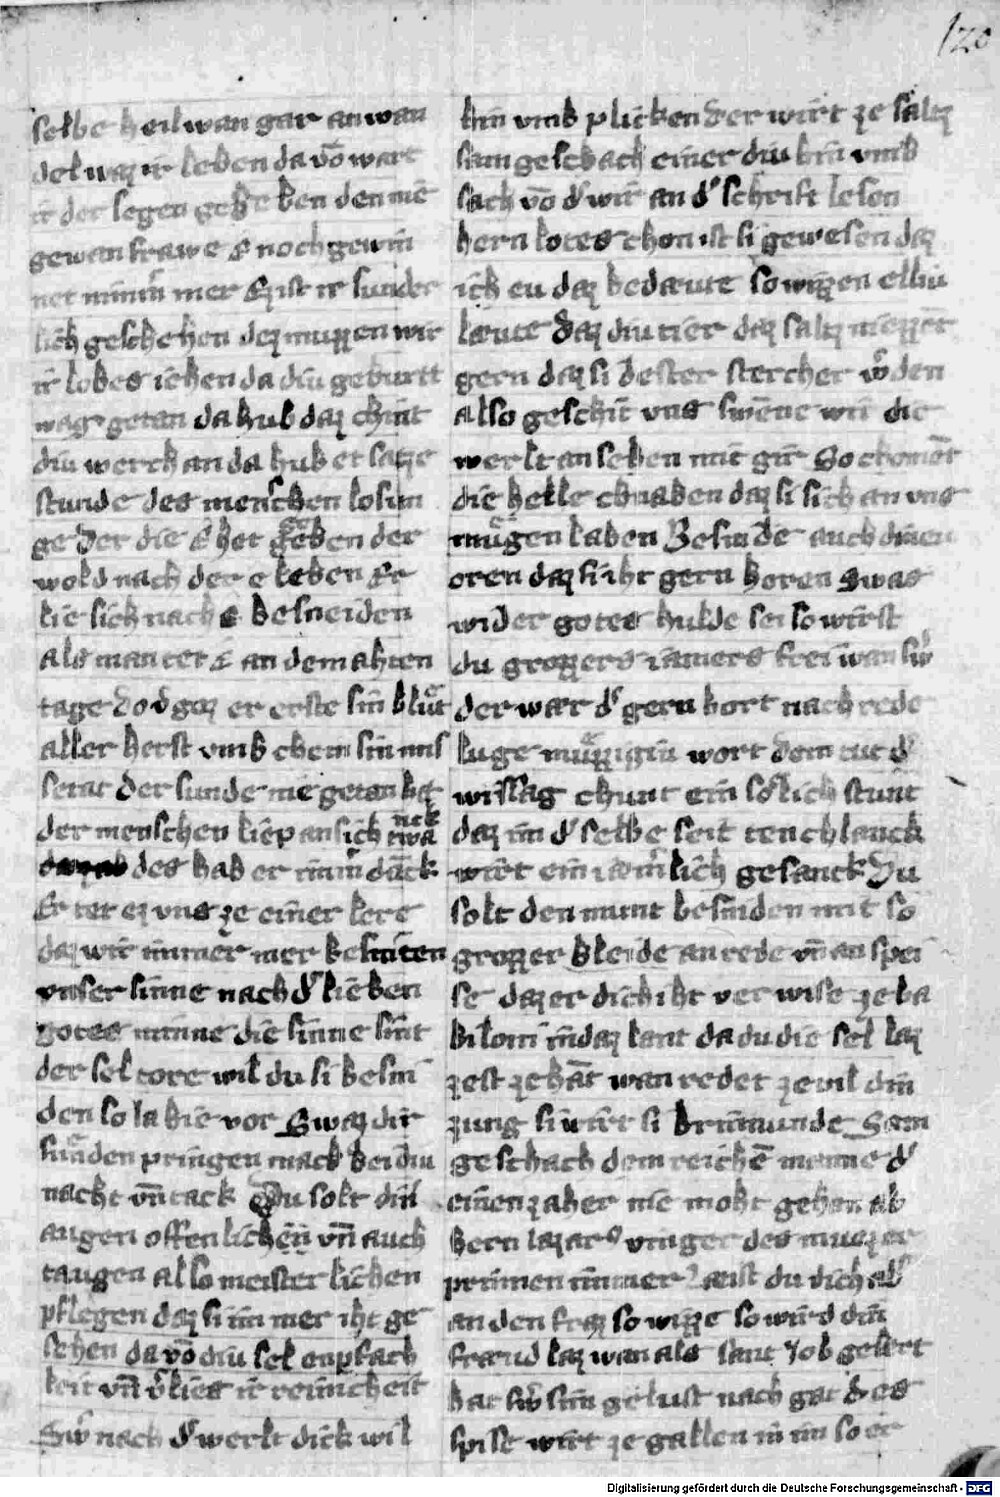 120
selbe heil wan gar an wan
del waz ir leben da võ wart
ir der segen gebeben den nie
gewan frawe E noch gewin
net nimm mer Ez ist ir sunder
lich geschehen dez muzzen wir
ir lobes iehen da diu geburtt
was getan da hub daz chint
diu werch an da hub er satze
stunde des menschen losun
ge Der die E het gegeben der
wold nach der e leben Er
lie sich nach E besneiden
als man tet E an dem ahten
tage Do vgoz er erste sin blut
aller herst vmb chein sin mis
setat der sunde nie getan hat
der menschen liep an sich nick twa
des hab er imm danck
Er tet ez vns ze einer lere
daz wir immer mer besniten
vnser sinne nach d' lieben
gotes minne die sinne sint
der sel tore wil du si besni
den so la hie vor Swaz dir
sunden pringen mach bei diu
nacht vñ tack Du solt din
augen offenlichen vñ auch
taugen also meisterlichen
pflegen daz si nimmer iht ge
sehen da võ diu sel enpfach
leit vñ v'lies ir reinicheit
Sw' nach d' werlt dick wil
hin vmb plicken der wirt ze saltz
sam geschach einer diu hin vmb
sach võ d' wir an d' schrift lesen
hern lotes chon ist si gewesen daz
ich eu daz bedæute so wizzen elliu
læute daz diu tier daz saltz niezzent
gern daz si dester stercher w'den
also geschit vns swene wir die
werlt an sehen mit gir So choment
die helle chnaben daz si sich an vns
mugen laben Besnide auch dinen
oren daz si iht gern horen Swas
wider gotes hulde sei so wirst
du grozzers iamers frei wan sw'
der war d' gern hort nach rede
luge muzzigiu wort dem tut d'
wissag chunt ein solich stunt
daz im d' selbe seit ten chlanck
wirt ein iæmlich gesanck Du
solt den munt besniden mit so
grozzer bleide an rede vñ an spei
se daz er dich iht verwise ze ba
biloni in daz lant da du die sel laz
zest ze hãt wan redet ze vil din
zung si wirt si brinnunde Sam
geschach dem reichē manne d'
einen zaher nie moht gehan ab
hern lazars vinger des muez er
prinnen immer Læist du dich ab'
an den fraz so wizze so wird din
fræud laz wan als sant Job gelert
hat sw' sin gelust nach gat Des
spise wirt ze gallen in im so er
Digitalisierung gefördert durch die Deutsche Forschungsgemeinschaft - DFG